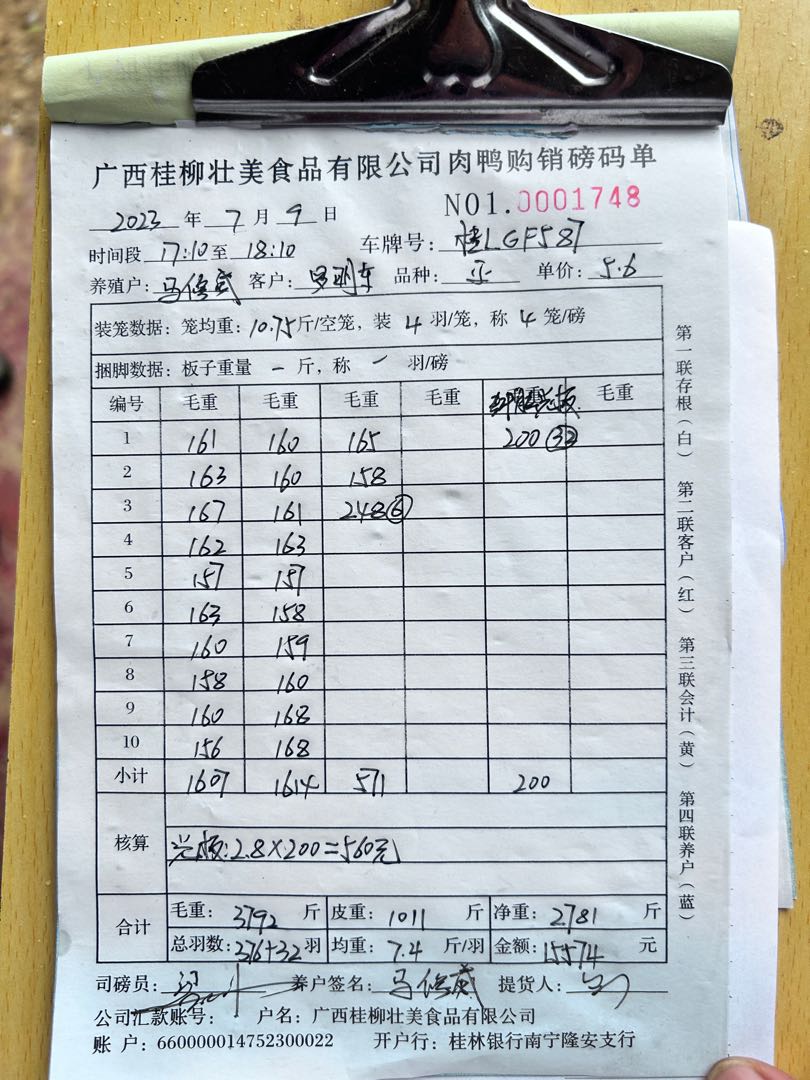 广西桂柳壮美食品有限公司肉鸭购销磅码单
NO1.0001748
2023 年 7 月 9 日
时间段 17:10 至 18:10 车牌号: 桂LGF587
养殖户: 马俊威 客户: 罗明东 品种: 单价: 5.6
装笼数据: 笼均重: 10.75 斤/空笼, 装 4 羽/笼, 称 4 笼/磅
捆脚数据: 板子重量 一 斤, 称 一 羽/磅
编号 毛重 毛重 毛重 毛重 毛重
1 161 160 165 200 (32)
2 163 160 158
3 167 161 248 (6)
4 162 163
5 157 157
6 163 158
7 160 159
8 158 160
9 160 168
10 156 168
小计 1607 1614 571 200
核算
:2.8×200=560元
合计
毛重: 3792 斤 皮重: 1011 斤 净重: 2781 斤
总羽数: 376+32 羽 均重: 7.4 斤/羽 金额: 15574 元
司磅员: 养户签名: 马俊威 提货人:
公司汇款账号: 户名: 广西桂柳壮美食品有限公司
账 户: 660000014752300022 开户行: 桂林银行南宁隆安支行
第一联存根(白) 第二联客户(红) 第三联会计(黄) 第四联养户(蓝)